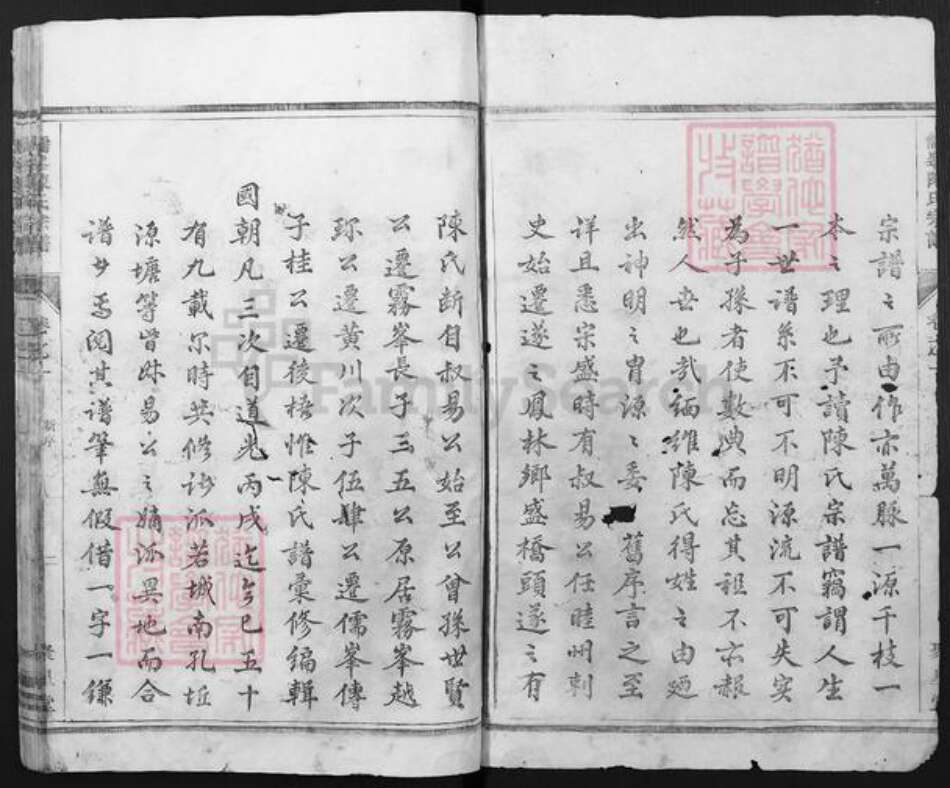 宗譜之所由作亦萬脈一源千枝一
本之理也予讀陳氏宗譜竊謂人生
一世譜系不可不明源流不可失实
為子孫者使數典而忘其祖不亦赧
然人世也哉緬維陳氏得姓之由廼
出神明之胄源之委舊序言之至
詳且悉宗盛時有叔易公任睦州刺
史始遷遂之鳳林鄉盛橋頭遂之有
陳氏断自叔易公始至公曾孫世賢
公遷霧峯長子三五公原居霧峯越
珎公遷黄川次子伍肆公遷儒峯傳
子桂公遷後梧惟陳氏譜彙修编輯
國朝凡三次自道光丙戌迄今已五十
有九載尔時共修诸派若城南孔坵
源塘等皆叔易公之嫡派異地而合
譜廿焉閲其譜筆無假借一字一鎌
FamilySearch